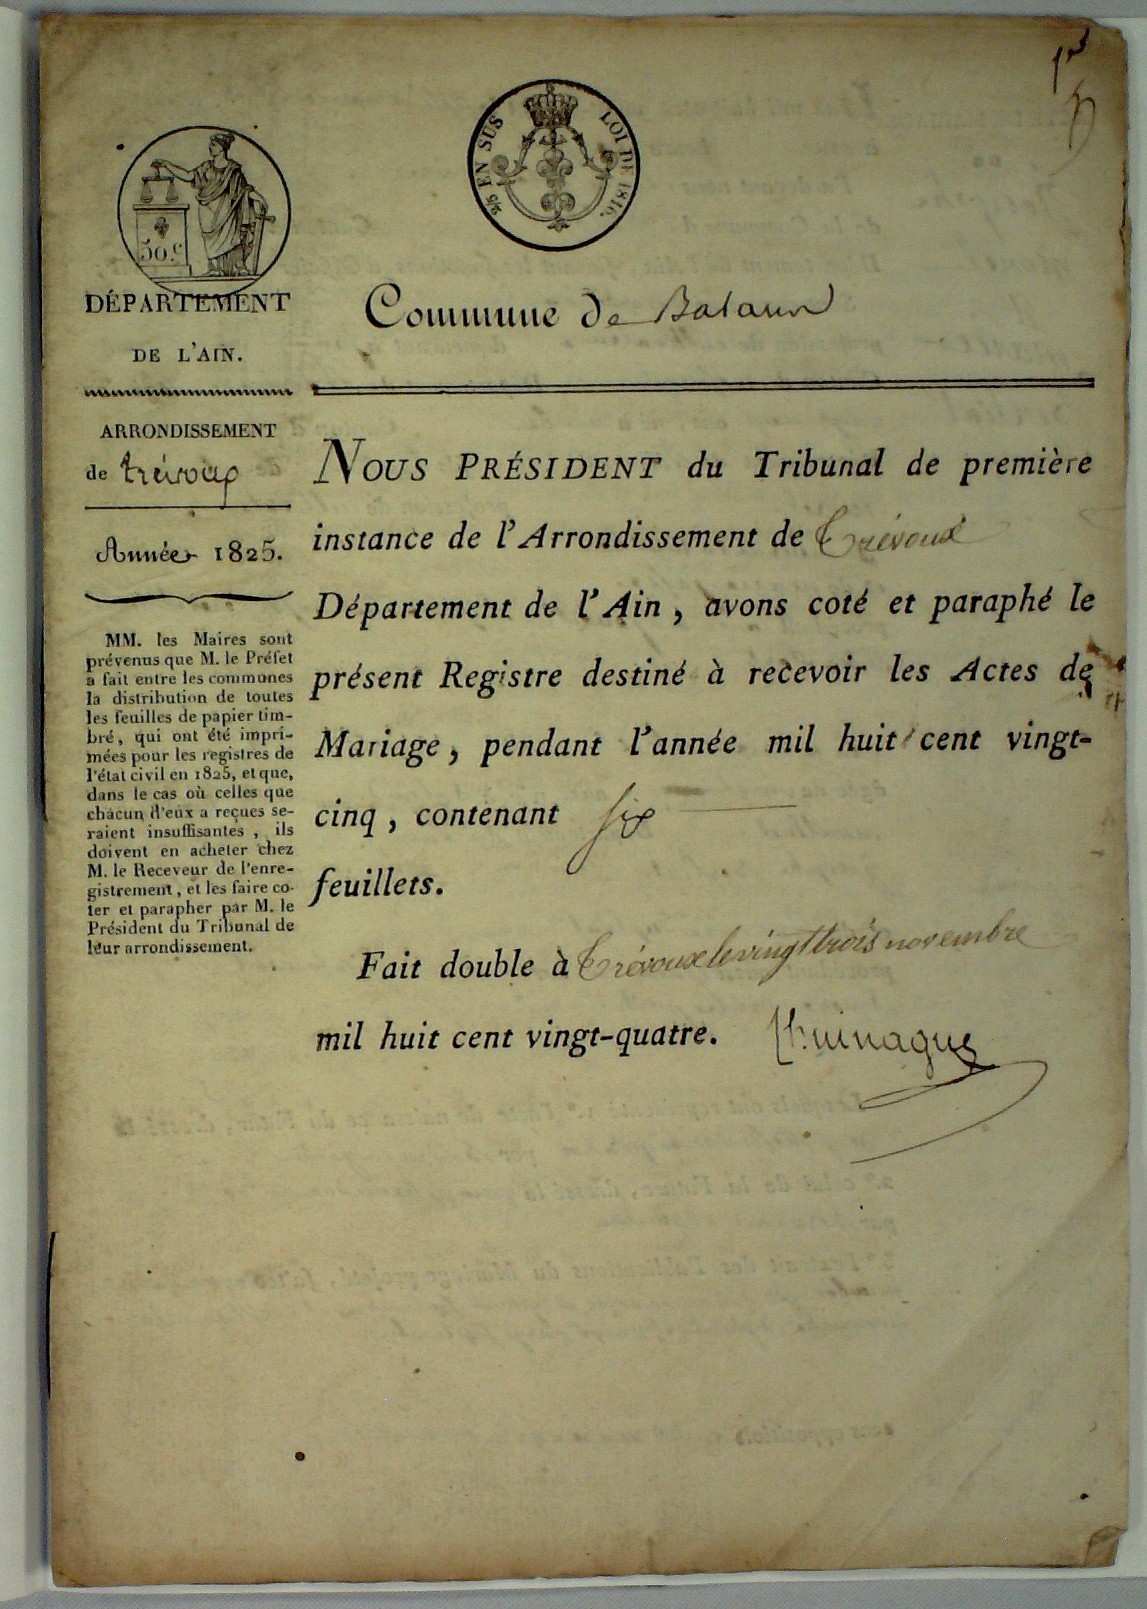 1er
2/5 EN SUS LOI DE 1816.
50.c
DÉPARTEMENT
DE L'AIN.
Commune de Balan
ARRONDISSEMENT
de trévoux
Année 1825.
MM. les Maires sont
prévenus que M. le Préfet
a fait entre les communes
la distribution de toutes
les feuilles de papier tim-
bré, qui ont été impri-
mées pour les registres de
l'état civil en 1825, et que,
dans le cas où celles que
chacun d'eux a reçues se-
raient insuffisantes, ils
doivent en acheter chez
M. le Receveur de l'enre-
gistrement, et les faire co-
ter et parapher par M. le
Président du Tribunal de
leur arrondissement.
NOUS PRÉSIDENT du Tribunal de première
instance de l'Arrondissement de Trévoux
Département de l'Ain, avons coté et paraphé le
présent Registre destiné à recevoir les Actes de
Mariage, pendant l'année mil huit cent vingt-
cinq, contenant six
feuillets.
Fait double à Trévoux le vingt trois novembre
mil huit cent vingt-quatre.